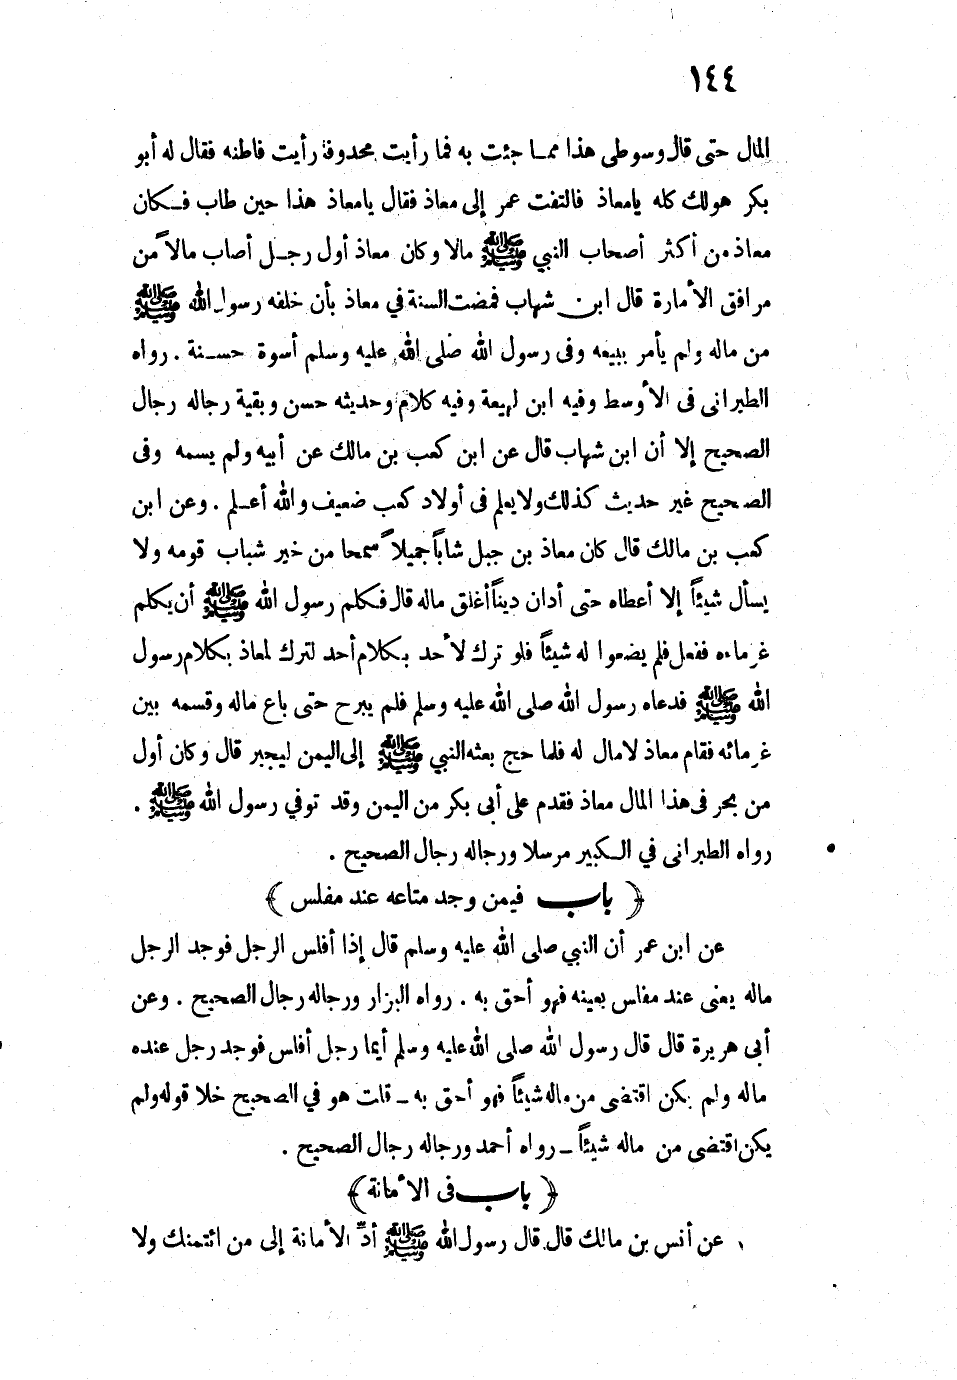 ١٤٤
المال حتى قال وسوطى هذا ممـا جئت به فما رأيت محدوفا رأيت فاطنه فقال له أبو
بكر هولك كله يامعاذ فالتفت عمر إلى معاذ فقال يامعاذ هذا حين طاب فـكان
معاذ من أكثر أصحاب النبي ﷺ مالا وكان معاذ أول رجـل أصاب مالاً من
مرافق الأمارة قال ابن شهاب فمضت السنة في معاذ بأن خلفه رسول الله ﷺ
من ماله ولم يأمر ببيعه وفى رسول الله صلى الله عليه وسلم أسوة حسـنة . رواه
الطبرانى فى الأوسط وفيه ابن لهيعة وفيه كلام وحديثه حسن وبقية رجاله رجال
الصحيح إلا أن ابن شهاب قال عن ابن كعب بن مالك عن أبيه ولم يسمه وفى
الصحيح غير حديث كذلك ولا يعلم فى أولاد كعب ضعيف والله أعـلم . وعن ابن
كعب بن مالك قال كان معاذ بن جبل شاباً جميلاً سمحا من خير شباب قومه ولا
يسأل شيئاً إلا أعطاه حتى أدان ديناً أغلق ماله قال فكلم رسول الله ﷺ أن يكلم
غرماءه ففعل فلم يضعوا له شيئاً فلو ترك لأحد بكلام أحد لترك لمعاذ بكلام رسول
الله ﷺ فدعاه رسول الله صلى الله عليه وسلم فلم يبرح حتى باع ماله وقسمه بين
غرمائه فقام معاذ لامال له فلما حج بعثه النبي ﷺ إلى اليمن ليجبر قال وكان أول
من بحر فى هذا المال معاذ فقدم على أبى بكر من اليمن وقد توفي رسول الله ﷺ .
رواه الطبرانى في الـكبير مرسلا ورجاله رجال الصحيح .
﴿ باب فيمن وجد متاعه عند مفلس ﴾
عن ابن عمر أن النبي صلى الله عليه وسلم قال إذا أفلس الرجل فوجد الرجل
ماله يعنى عند مفلس بعينه فهو أحق به . رواه البزار ورجاله رجال الصحيح . وعن
أبى هريرة قال قال رسول الله صلى الله عليه وسلم أيما رجل أفلس فوجد رجل عنده
ماله ولم يكن اقتضى من ماله شيئاً فهو أحق به ـ قلت هو في الصحيح خلا قوله ولم
يكن اقتضى من ماله شيئاً ـ رواه أحمد ورجاله رجال الصحيح .
﴿ باب فى الأمانة ﴾
عن أنس بن مالك قال قال رسول الله ﷺ أدِّ الأمانة إلى من ائتمنك ولا